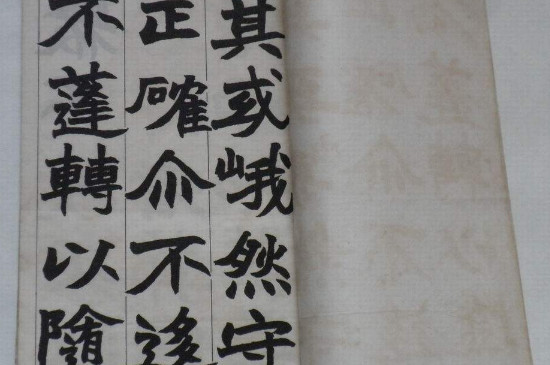 其或峨然守
正確尒不迻
不蓬轉以隨